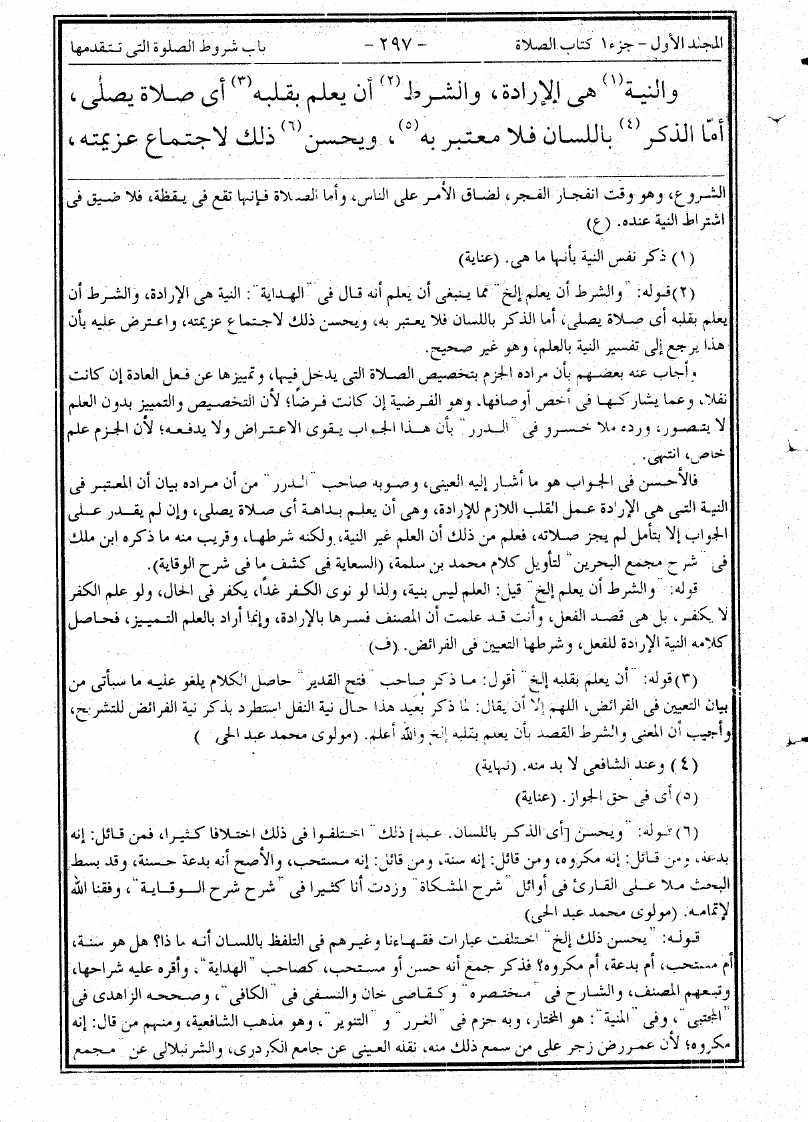 المجلد الأول - جزء ١ كتاب الصلاة - ٢٩٧ - باب شروط الصلوة التى تتقدمها
والنية(١) هى الإرادة، والشرط(٢) أن يعلم بقلبه(٣) أى صلاة يصلى،
أمّا الذكر(٤) باللسان فلا معتبر به(٥)، ويحسن(٦) ذلك لاجتماع عزيمته،
الشروع، وهو وقت انفجار الفجر، لضاق الأمر على الناس، وأما الصلاة فإنها تقع فى يقظة، فلا ضيق فى
اشتراط النية عنده. (ع)
(١) ذكر نفس النية بأنها ما هى. (عناية)
(٢) قوله: "والشرط أن يعلم إلخ" مما ينبغى أن يعلم أنه قال فى "الهداية": النية هى الإرادة، والشرط أن
يعلم بقلبه أى صلاة يصلى، أما الذكر باللسان فلا يعتبر به، ويحسن ذلك لاجتماع عزيمته، واعترض عليه بأن
هذا يرجع إلى تفسير النية بالعلم، وهو غير صحيح.
وأجاب عنه بعضهم بأن مراده الجزم بتخصيص الصلاة التى يدخل فيها، وتمييزها عن فعل العادة إن كانت
نفلا، وعما يشاركها فى أخص أوصافها. وهو الفرضية إن كانت فرضًا؛ لأن التخصيص والتمييز بدون العلم
لا يتصور، ورده ملا خسرو فى "الدرر" بأن هذا الجواب يقوى الاعتراض ولا يدفعه؛ لأن الجزم علم
خاص، انتهى.
فالأحسن فى الجواب هو ما أشار إليه العينى، وصوبه صاحب "الدرر" من أن مراده بيان أن المعتبر فى
النية التى هى الإرادة عمل القلب اللازم للإرادة، وهى أن يعلم بداهة أى صلاة يصلى، وإن لم يقدر على
الجواب إلا بتأمل لم يجز صلاته، فعلم من ذلك أن العلم غير النية، ولكنه شرطها، وقريب منه ما ذكره ابن ملك
فى "شرح مجمع البحرين" لتأويل كلام محمد بن سلمة، (السعاية فى كشف ما فى شرح الوقاية).
قوله: "والشرط أن يعلم إلخ" قيل: العلم ليس بنية، ولذا لو نوى الكفر غدًا، يكفر فى الحال، ولو علم الكفر
لا يكفر، بل هى قصد الفعل، وأنت قد علمت أن المصنف فسرها بالإرادة، وإنما أراد بالعلم التمييز، فحاصل
كلامه النية الإرادة للفعل، وشرطها التعيين فى الفرائض. (ف)
(٣) قوله: "أن يعلم بقلبه إلخ" أقول: ما ذكر صاحب "فتح القدير" حاصل الكلام يلغو عليه ما سيأتى من
بيان التعيين فى الفرائض، اللهم إلا أن يقال: لما ذكر بُعيد هذا حال نية النفل استطرد بذكر نية الفرائض للتشريح،
وأجيب أن المعنى والشرط القصد بأن يعلم بقلبه إلخ والله أعلم. (مولوى محمد عبد الحى )
(٤) وعند الشافعى لا بد منه. (نهاية)
(٥) أى فى حق الجواز. (عناية)
(٦) قوله: "ويحسن [أى الذكر باللسان. عبد] ذلك" اختلفوا فى ذلك اختلافا كثيرا، فمن قائل: إنه
بدعة، ومن قائل: إنه مكروه، ومن قائل: إنه سنة، ومن قائل: إنه مستحب، والأصح أنه بدعة حسنة، وقد بسط
البحث ملا على القارئ فى أوائل "شرح المشكاة" وزدت أنا كثيرا فى "شرح شرح الوقاية"، وفقنا الله
لإتمامه. (مولوى محمد عبد الحى)
قوله: "يحسن ذلك إلخ" اختلفت عبارات فقهاءنا وغيرهم فى التلفظ باللسان أنه ما ذا؟ هل هو سنة،
أم مستحب، أم بدعة، أم مكروه؟ فذكر جمع أنه حسن أو مستحب، كصاحب "الهداية"، وأقره عليه شراحها،
وتبعهم المصنف، والشارح فى "مختصره" وكقاضى خان والنسفى فى "الكافى"، وصححه الزاهدى فى
"المجتبى"، وفى "المنية": هو المختار، وبه جزم فى "الغرر" و "التنوير"، وهو مذهب الشافعية، ومنهم من قال: إنه
مكروه؛ لأن عمر رض زجر على من سمع ذلك منه، نقله العينى عن جامع الكردرى، والشرنبلالى عن "مجمع